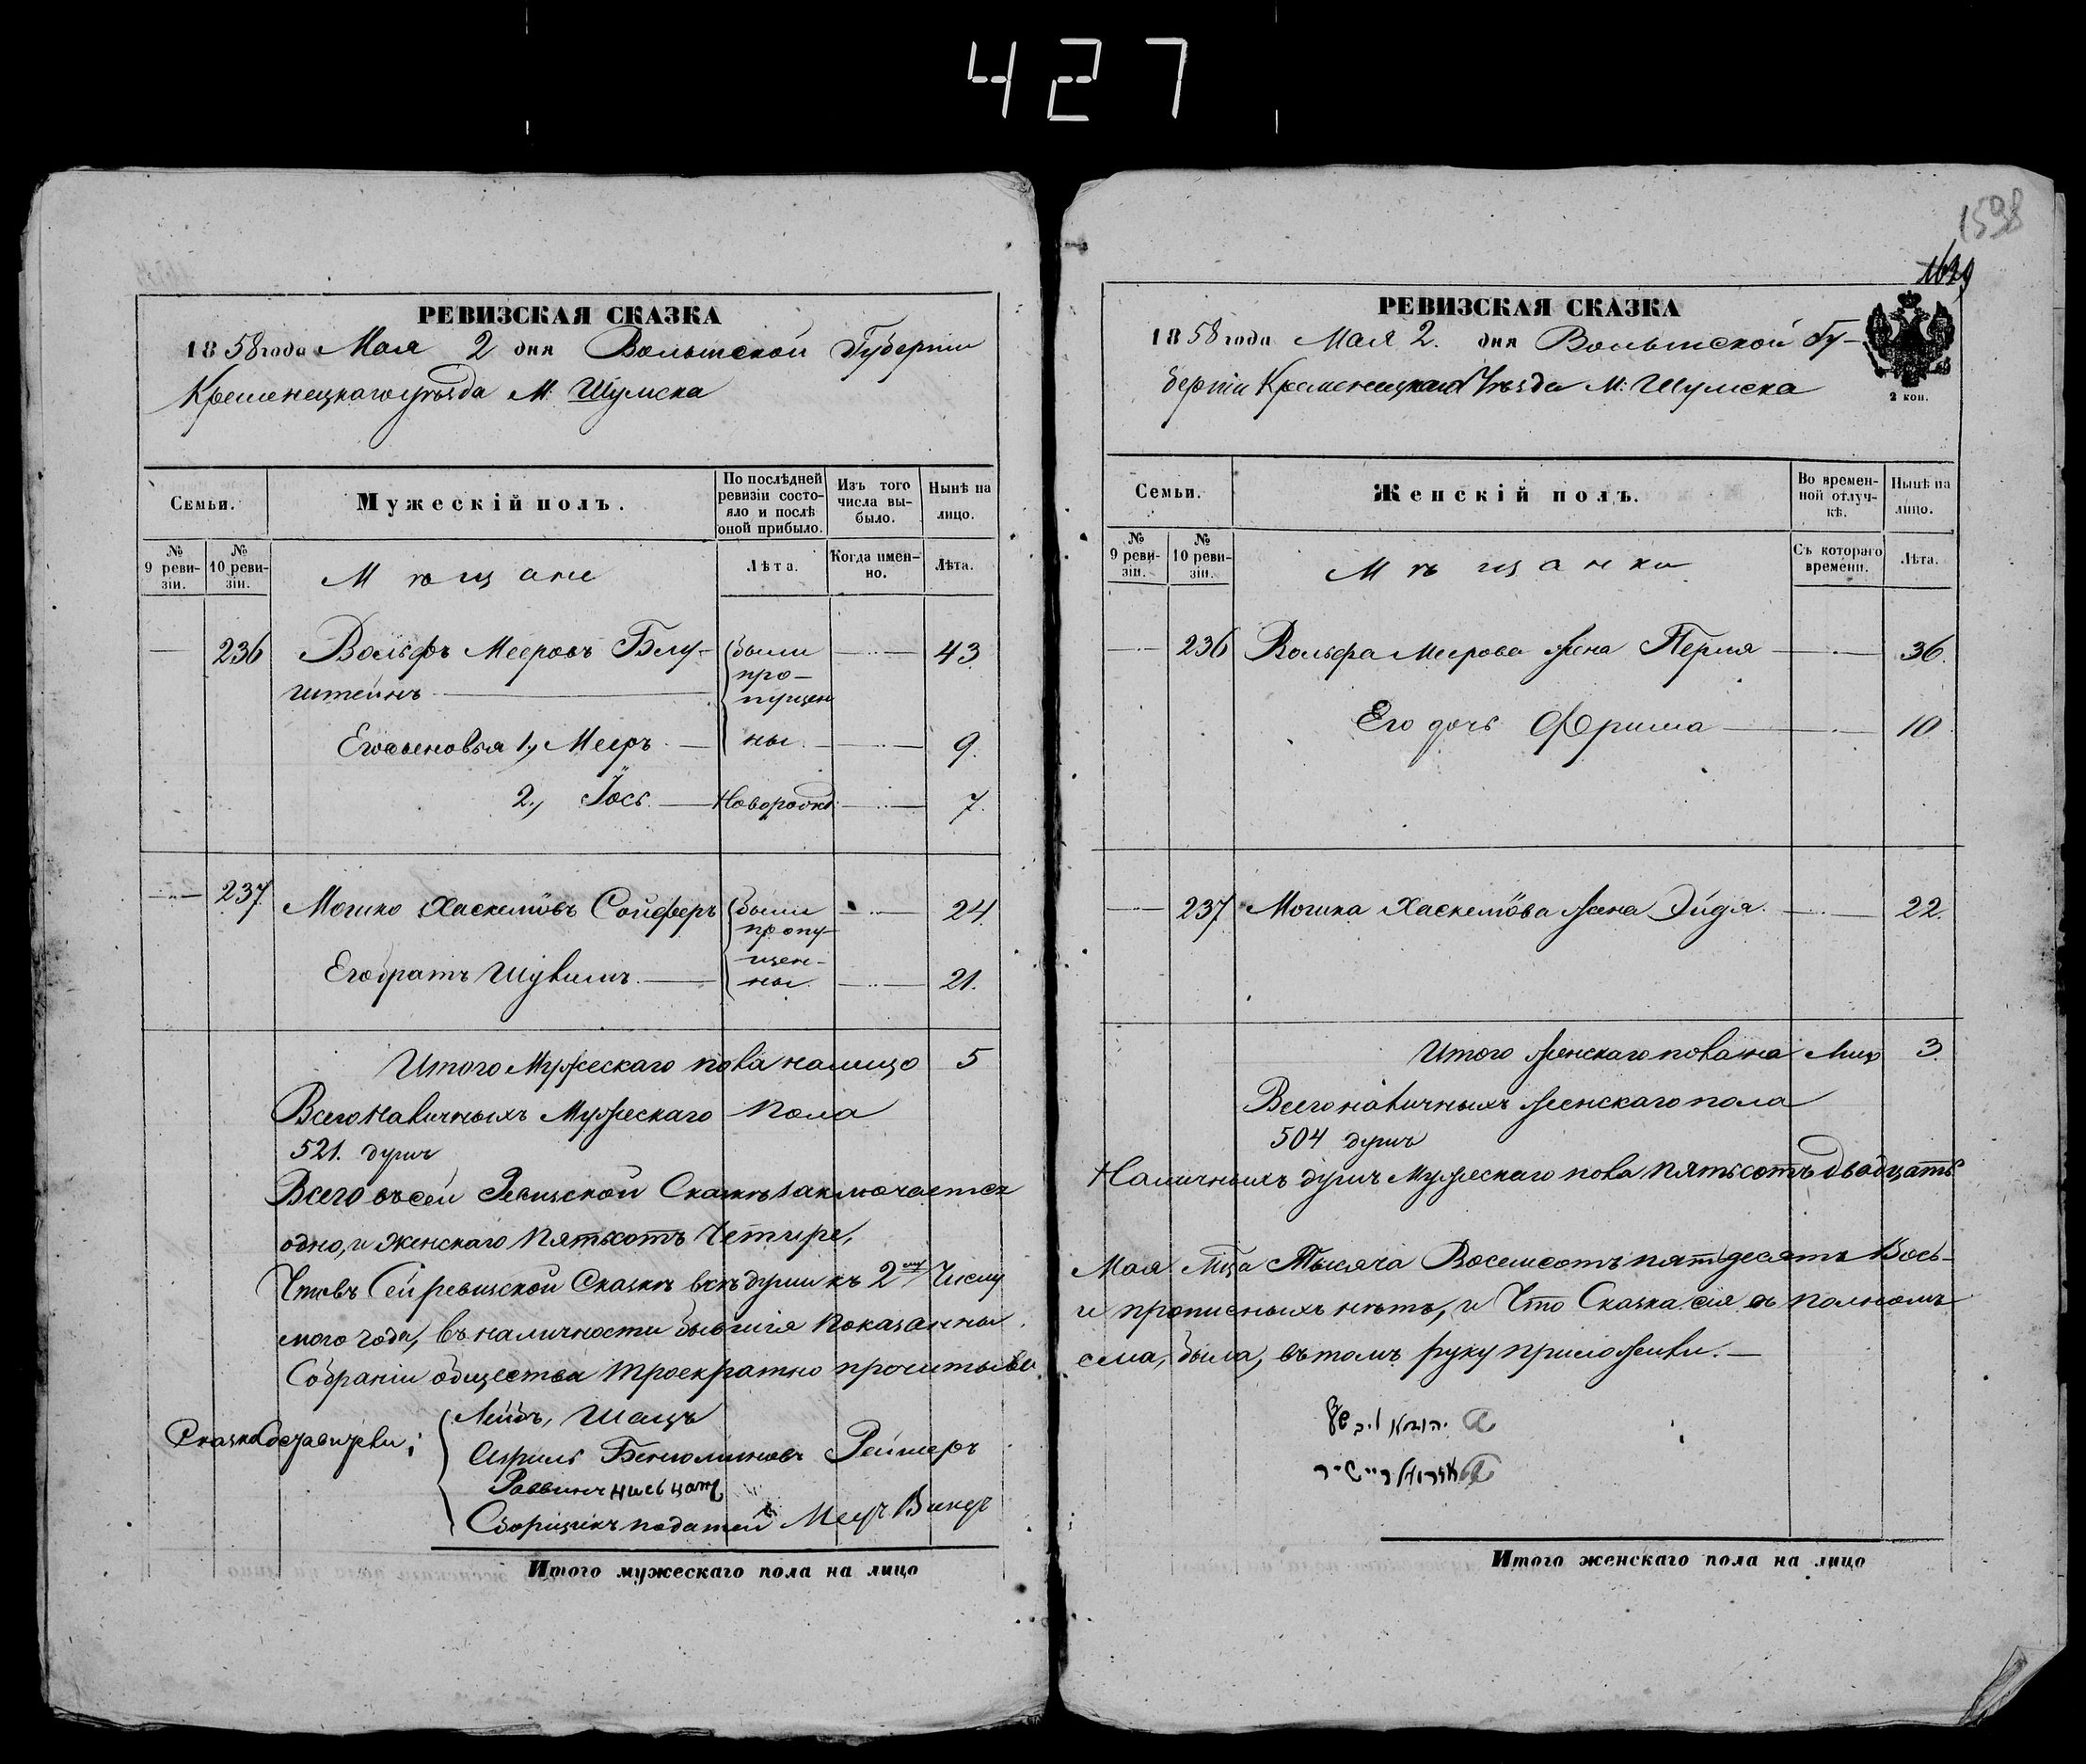 427
РЕВИЗСКАЯ СКАЗКА
1858 года Мая 2 дня Волынской Губерніи
Кременецкаго уѣзда М. Шумска
Семьи.
Мужескій полъ.
По послѣдней ревизіи состояло и послѣ оной прибыло.
Изъ того числа выбыло.
Нынѣ на лицо.
№ 9 ревизіи.
№ 10 ревизіи.
Мѣщане
Лѣта.
Когда именно.
Лѣта.
236 Вольфъ Мееровъ Блу- были 43
штейнъ про-
пущен
Его сыновья 1, Мееръ ны 9.
2, Іось Новорожд 7.
237 Мошко Хаскелiовъ Сойферъ были 24.
пропу-
щен-
Его братъ Шувилъ ны 21.
Итого Мужескаго пола налицо 5
Всего наличныхъ Мужескаго Пола
521. душъ
Всего въ сей Ревизской Сказкѣ заключается
одно, и женскаго Пятьсотъ Четыре,
Что въ Сей ревизской Сказкѣ всѣ души къ 2му Числу
мого года, въ наличности бывшія показанны
Собраніи общества троекратно прочитыва
Сказкосоставители;
Лейбъ, Шацъ
Азриль Беньоминовъ Реймеръ
Раввинъ
Сборщикъ податей Меер
Итого мужескаго пола на лицо
1598
1639
РЕВИЗСКАЯ СКАЗКА
1858 года Мая 2. дня Волынской Гу-
берніи Кременецкаго Уѣзда М. Шумска
2 коп.
Семьи.
Женскій полъ.
Во временной отлучкѣ.
Нынѣ на лицо.
№ 9 ревизіи.
№ 10 ревизіи.
Мѣщанки
Съ котораго времени.
Лѣта.
236 Вольфа Меерова жена Перля 36.
Его дочь Фрима 10
237 Мошка Хаскелiова жена Эйдя. 22.
Итого женскаго пола на Лицо 3
Всего наличныхъ женскаго пола
504 душъ
Наличныхъ душъ Мужескаго пола Пятьсотъ двадцать
Мая Мца Тысяча Восемсотъ пятдесятъ Вось-
и прописныхъ нѣтъ, и Что Сказка сія въ полномъ
ема, была, въ томъ руку приложили.
Итого женскаго пола на лицо